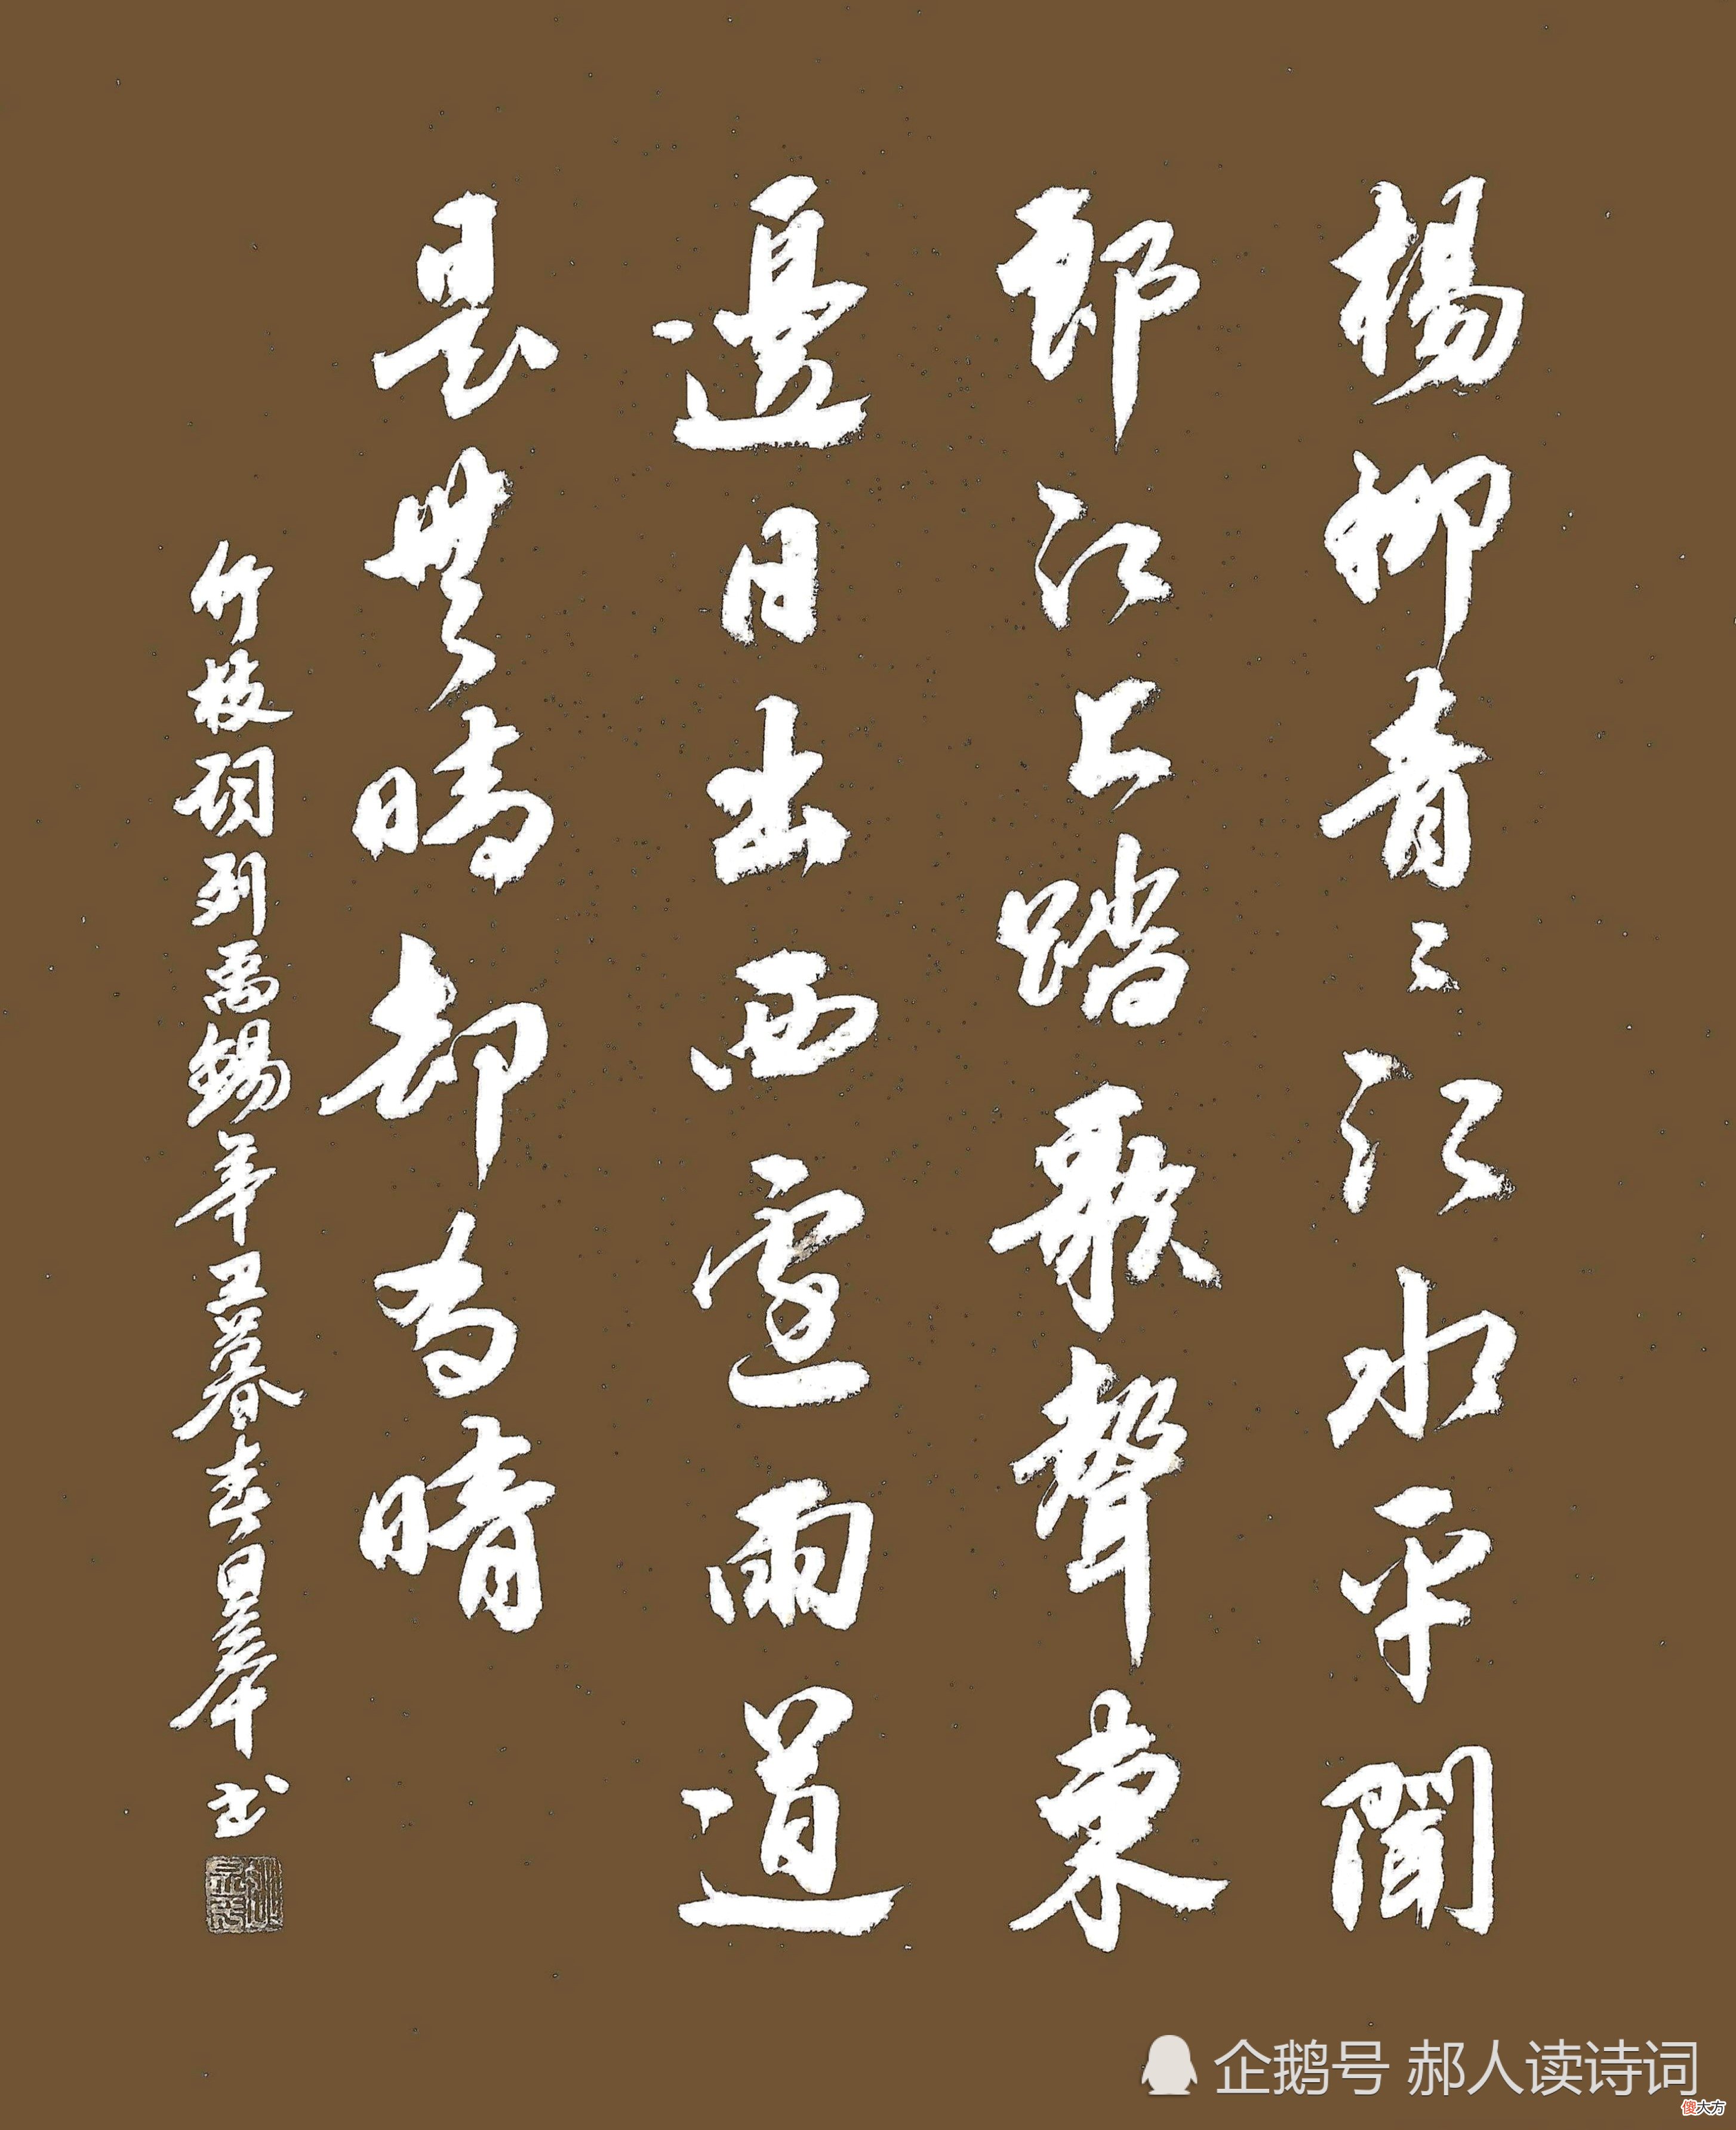 楊柳青〻江水平聞
郎江上踏歌聲東
邊日出西邊雨道
是無晴却有晴
竹枝词刘禹錫辛丑暮春日峯书
企鹅号 郝人读诗词
傻大方